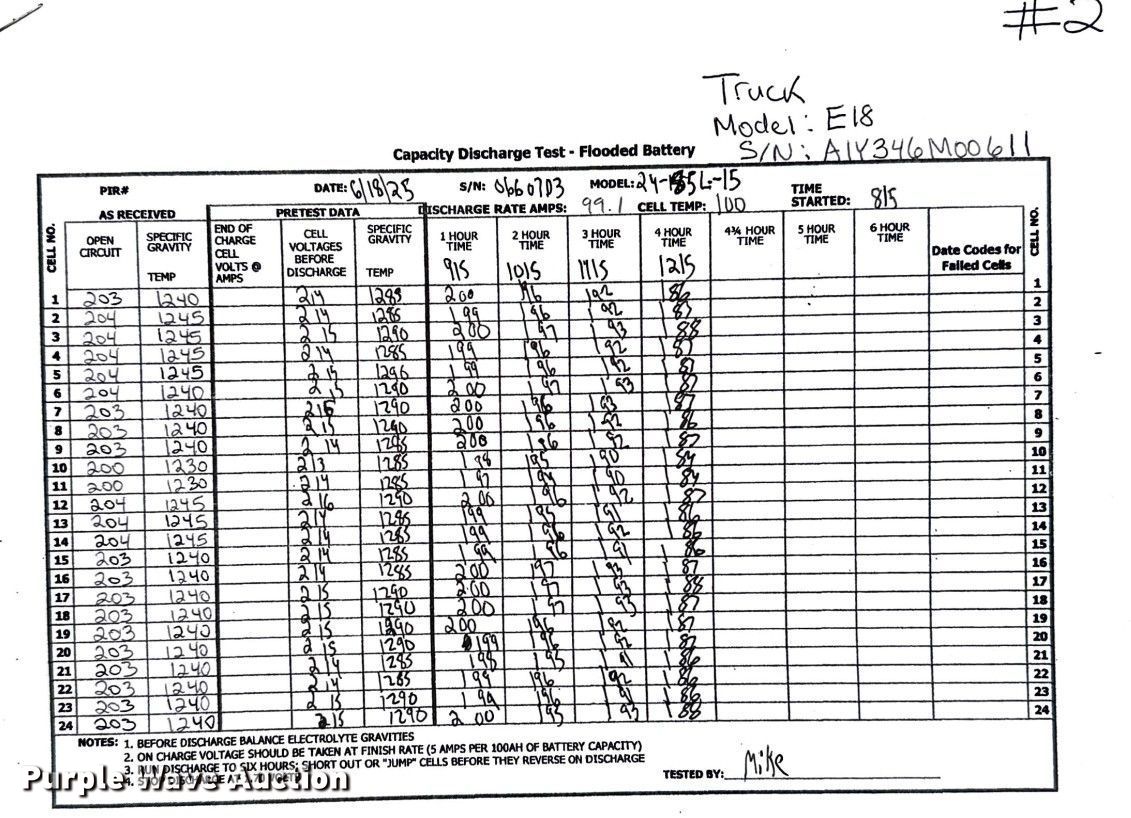 #2
Truck
Model: E18
S/N: A1Y346M00611
Capacity Discharge Test - Flooded Battery
PIR# DATE: 6/18/25 S/N: MODEL: TIME STARTED: 815
AS RECEIVED PRETEST DATA DISCHARGE RATE AMPS: 99.1 CELL TEMP: 100
CELL NO. OPEN CIRCUIT SPECIFIC GRAVITY TEMP END OF CHARGE CELL VOLTS @ AMPS CELL VOLTAGES BEFORE DISCHARGE SPECIFIC GRAVITY TEMP 1 HOUR TIME 2 HOUR TIME 3 HOUR TIME 4 HOUR TIME 4¾ HOUR TIME 5 HOUR TIME 6 HOUR TIME Date Codes for Failed Cells CELL NO.
915 1015 1115 1215
1 203 1240 214 1285 200 196 192 186 1
2 204 1245 214 1285 199 196 192 187 2
3 204 1245 215 1290 200 197 193 188 3
4 204 1245 214 1285 199 196 192 187 4
5 204 1245 199 196 192 187 5
6 204 1240 215 1290 200 197 193 187 6
7 203 1240 1290 200 196 193 187 7
8 203 1240 215 1290 200 196 192 186 8
9 203 1240 214 1285 200 196 192 187 9
10 200 1230 213 1285 190 184 10
11 200 1230 214 1285 197 194 190 184 11
12 204 1245 216 1290 200 196 192 187 12
13 204 1245 214 1285 199 195 191 186 13
14 204 1245 214 1285 199 196 192 186 14
15 203 1240 214 1285 199 196 191 186 15
16 203 1240 214 1285 200 197 193 187 16
17 203 1240 215 1290 200 197 193 188 17
18 203 1240 215 1290 200 197 193 187 18
19 203 1240 215 1290 200 196 192 187 19
20 203 1240 215 1290 199 196 192 187 20
21 203 1240 214 1285 198 195 191 186 21
22 203 1240 214 1285 199 196 192 186 22
23 203 1240 215 1290 199 196 191 186 23
24 203 1240 215 1290 200 193 188 24
NOTES: 1. BEFORE DISCHARGE BALANCE ELECTROLYTE GRAVITIES
2. ON CHARGE VOLTAGE SHOULD BE TAKEN AT FINISH RATE (5 AMPS PER 100AH OF BATTERY CAPACITY)
3. RUN DISCHARGE TO SIX HOURS; SHORT OUT OR "JUMP" CELLS BEFORE THEY REVERSE ON DISCHARGE
4. STOP DISCHARGE AT 1.70 VOLTS
TESTED BY: Mike
Purple Wave Auction